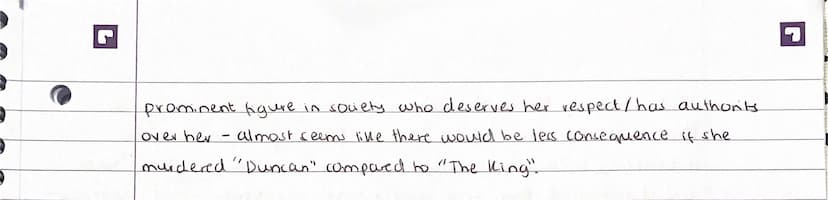 prominent figure in society who deserves her respect/has authority
over her - almost seems like there would be less consequence if she
murdered "Duncan" compared to "The King".